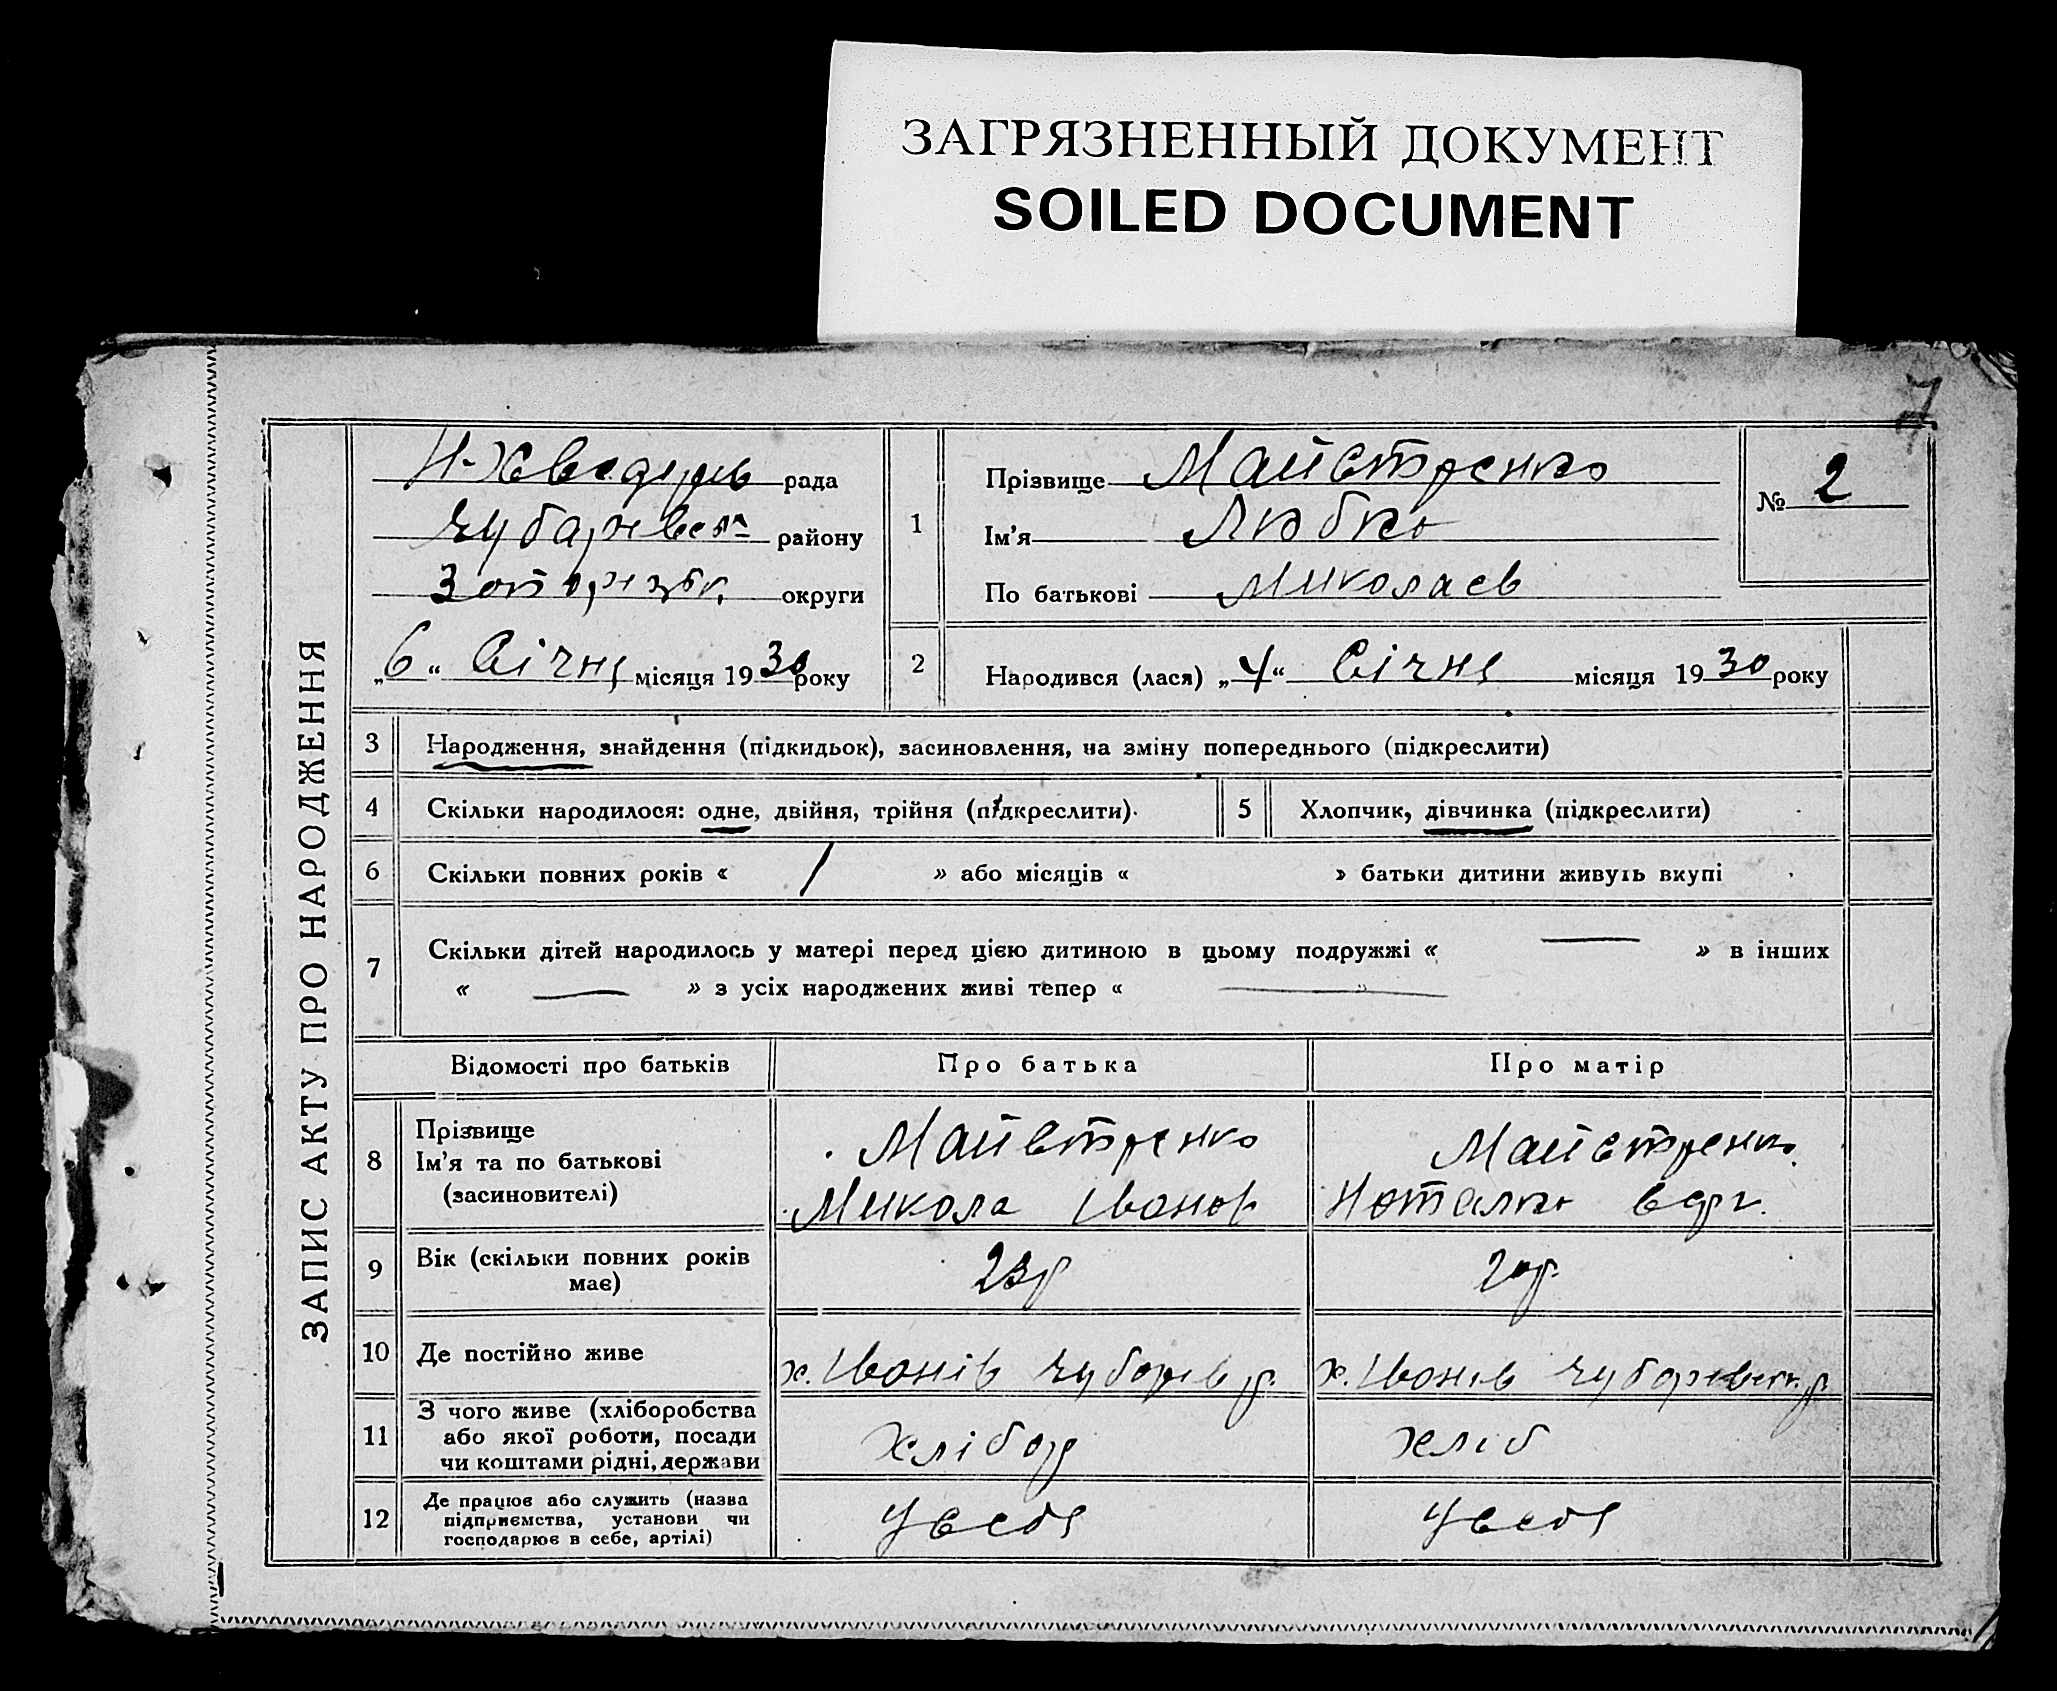 ЗАГРЯЗНЕННЫЙ ДОКУМЕНТ
SOILED DOCUMENT
7
ЗАПИС АКТУ ПРО НАРОДЖЕННЯ
Н-Хведорів рада
Чубарівськ району
Запоріжк. округи
„6“ Січня місяця 1930 року
1
Прізвище Майстренко
Ім'я Любка
По батькові Миколаєв
№ 2
2
Народився (лася) „4“ Січня місяця 1930 року
3 Народження, знайдення (підкидьок), засиновлення, на зміну попереднього (підкреслити)
4 Скільки народилося: одне, двійня, трійня (підкреслити).
5 Хлопчик, дівчинка (підкреслити)
6 Скільки повних років « 1 » або місяців « » батьки дитини живуть вкупі
7 Скільки дітей народилось у матері перед цією дитиною в цьому подружжі « — » в інших
« — » з усіх народжених живі тепер « — »
Відомості про батьків Про батька Про матір
8 Прізвище
Ім'я та по батькові
(засиновителі)
Майстренко
Микола Іванов
Майстренко
Наталка
9 Вік (скільки повних років
має)
23р
20р.
10 Де постійно живе
х. Іванів Чубарів р.
х. Іванів Чубарівськ. р.
11 З чого живе (хліборобства
або якої роботи, посади
чи коштами рідні, держави
хлібор
хліб
12 Де працює або служить (назва
підприємства, установи чи
господарює в себе, артілі)
У себе
У себе